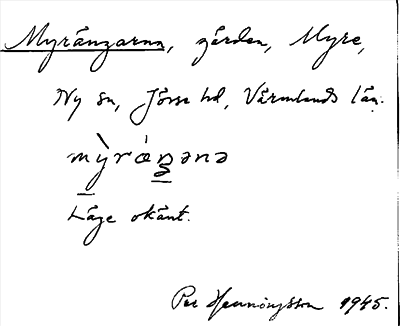 Myrängarna, gården, Myre,
Ny sn, Jösse hd, Värmlands län.
mỳrάŋənə
Läge okänt.
Per Henningsson 1945.